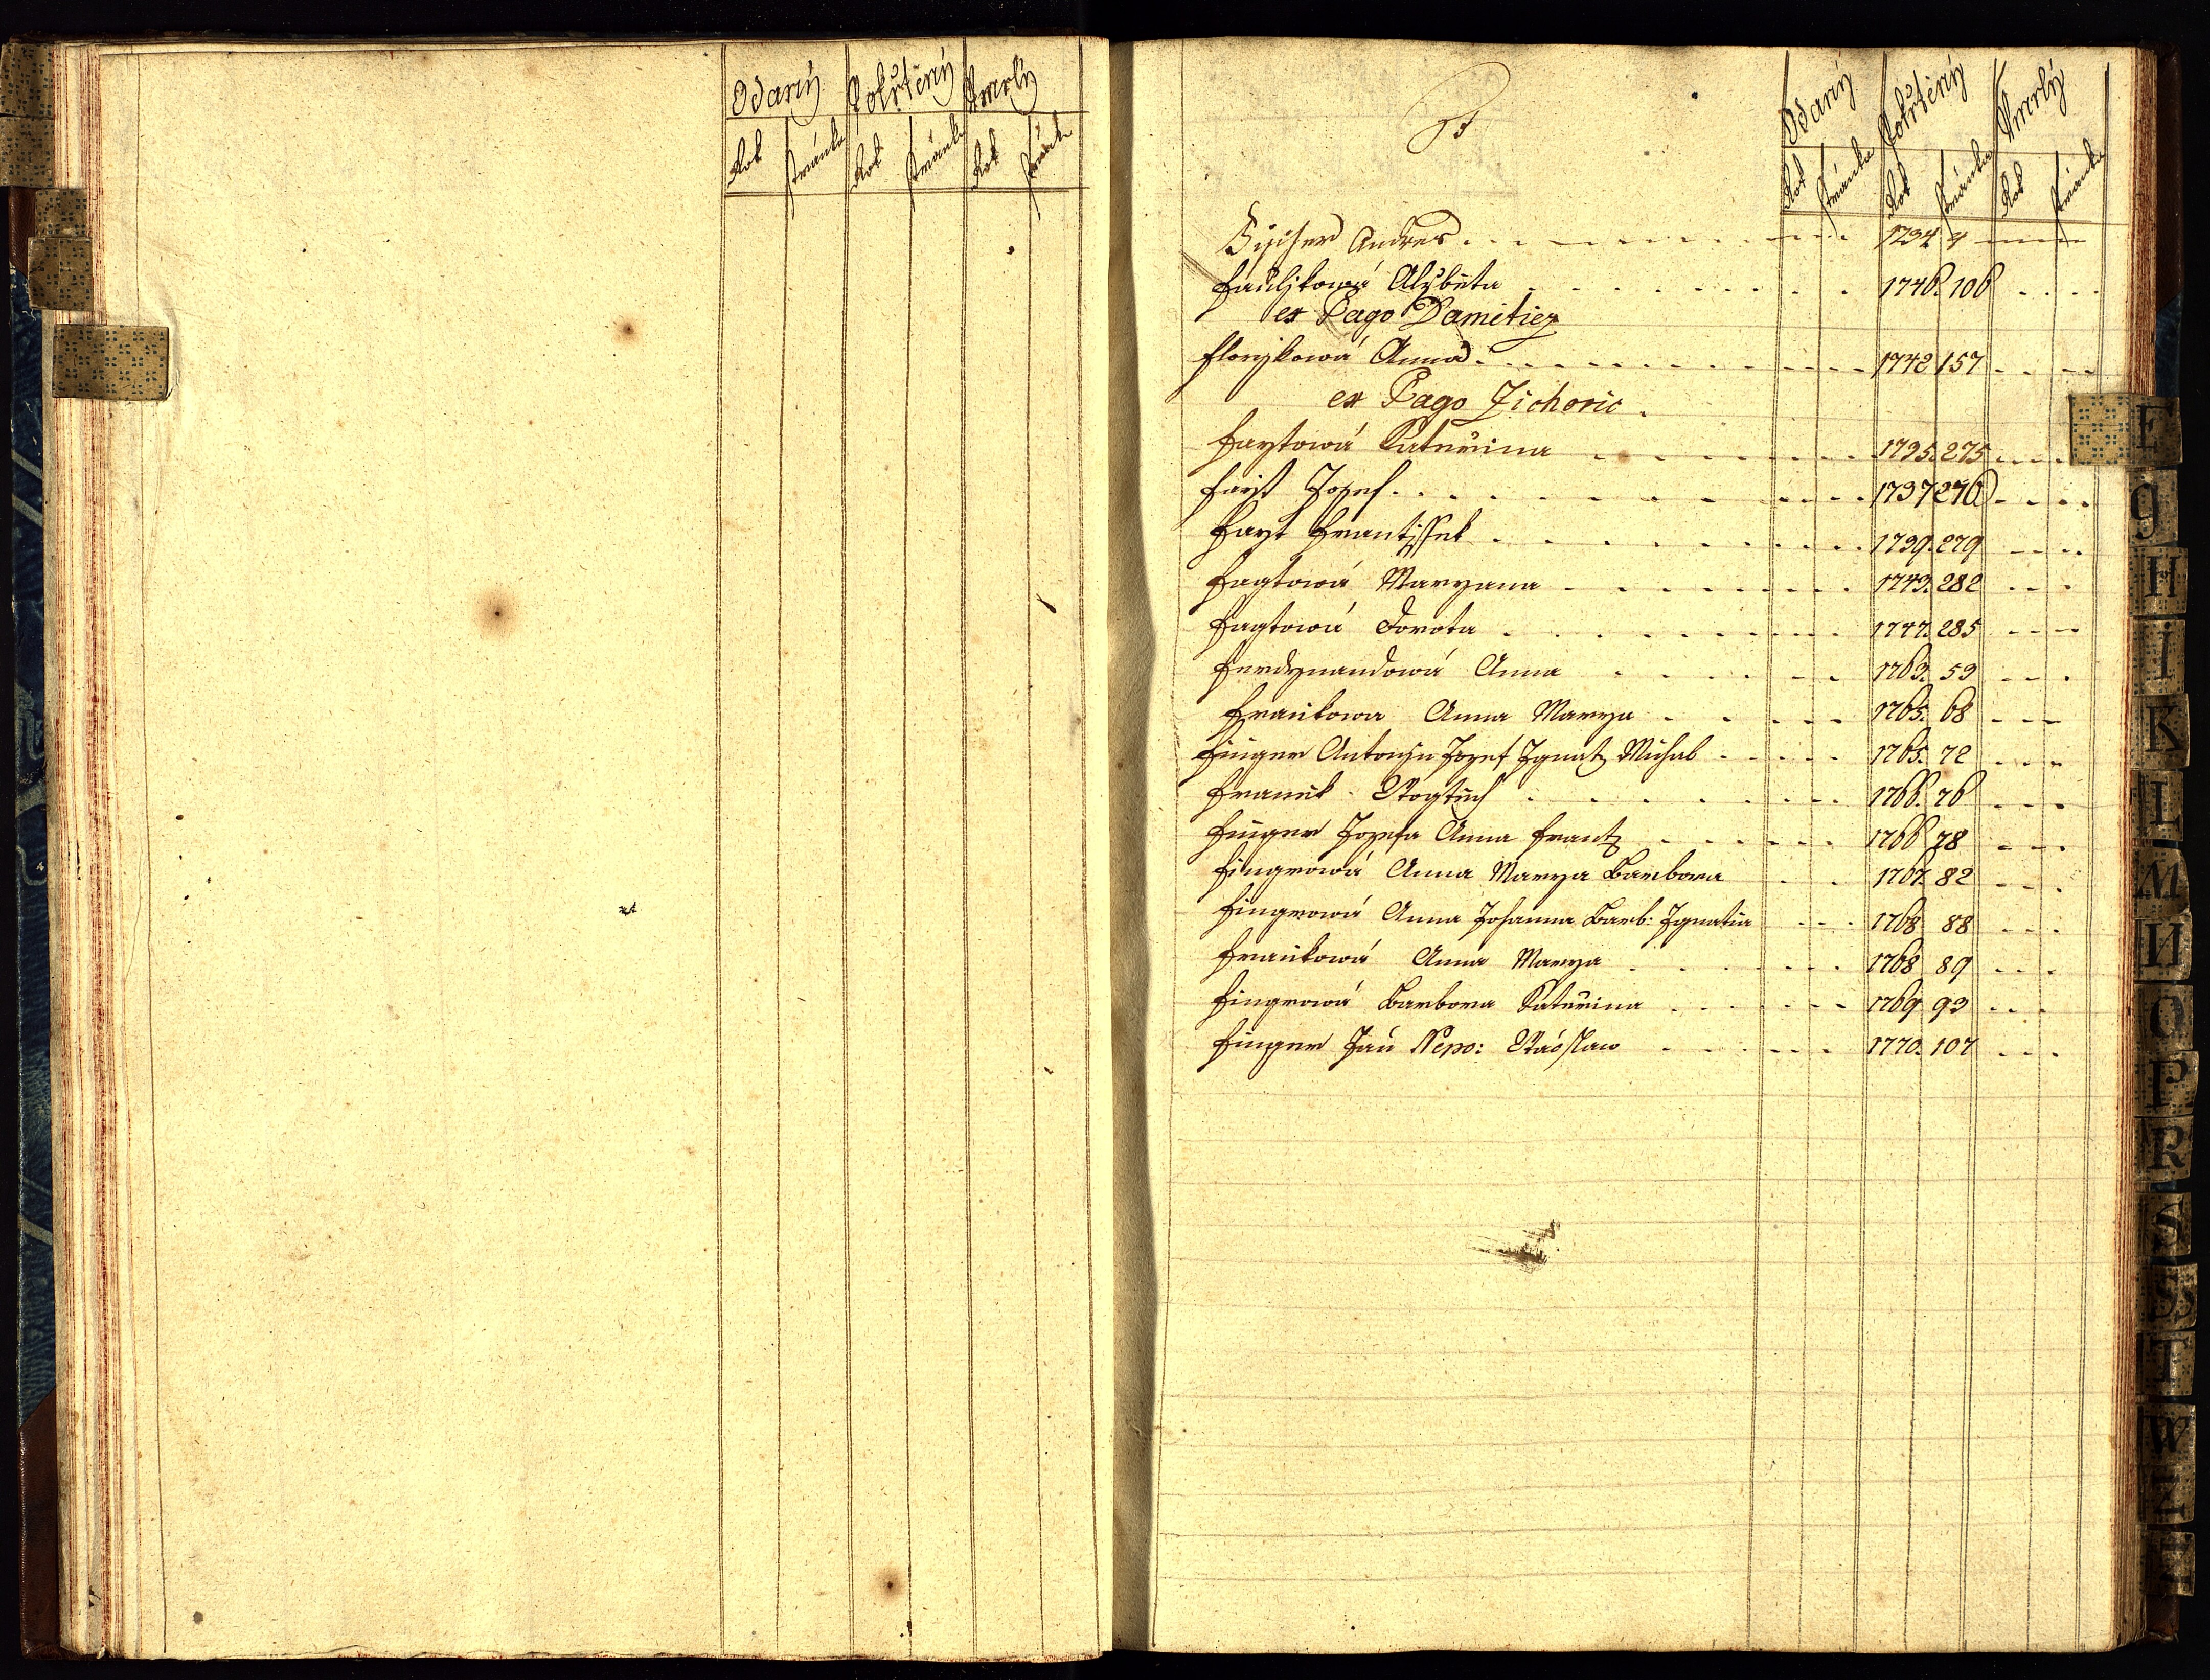 Odaný Pokřtěný Vmrlý
Rok stránka Rok stránka Rok stránka
F
Odaný Pokřtěný Vmrlý
Rok stránka Rok stránka Rok stránka
Fischer Andres 1734 4
Faulikowá Alžběta 1746. 106
ex Pago Damiticz
Florykowá Anna 1742 157
ex Pago Zichovic.
Faytowá Kateřina 1735. 275
Fayt Jozef 1737 276
Fayt Frantissek 1739. 279
Faytowá Maryana 1743. 282
Faytowá Dorota 1747. 285
Ferdynandowá Anna 1763. 59
Frankowa Anna Marya 1765. 68
Finger Antonjn Jozef Ignatz Michal 1765. 72
Franěk 1766. 76
Finger Jozefa Anna Frantz 1766 78
Fingrowá Anna Marya Barbora 1767. 82
Fingrowá Anna Johanna Barb: Ignatia 1768 88
Frankowá Anna Marya 1768 89
Fingrowá Barbora Kateřina 1769 93
Finger Jan Nepo: Wácslaw 1770. 107
F
G
H
I
K
L
M
N
O
P
R
S
S
T
W
Z